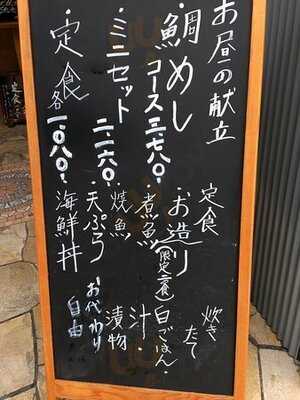 お昼の献立
鯛めし
コース三、七八〇
ミニセット
二、一六〇
定食
各一、〇八〇
定食
お造り
(限定二食)
煮魚
焼魚
天ぷら
海鮮丼
炊きたて
白ごはん
汁
漬物
お代わり
自由
定食